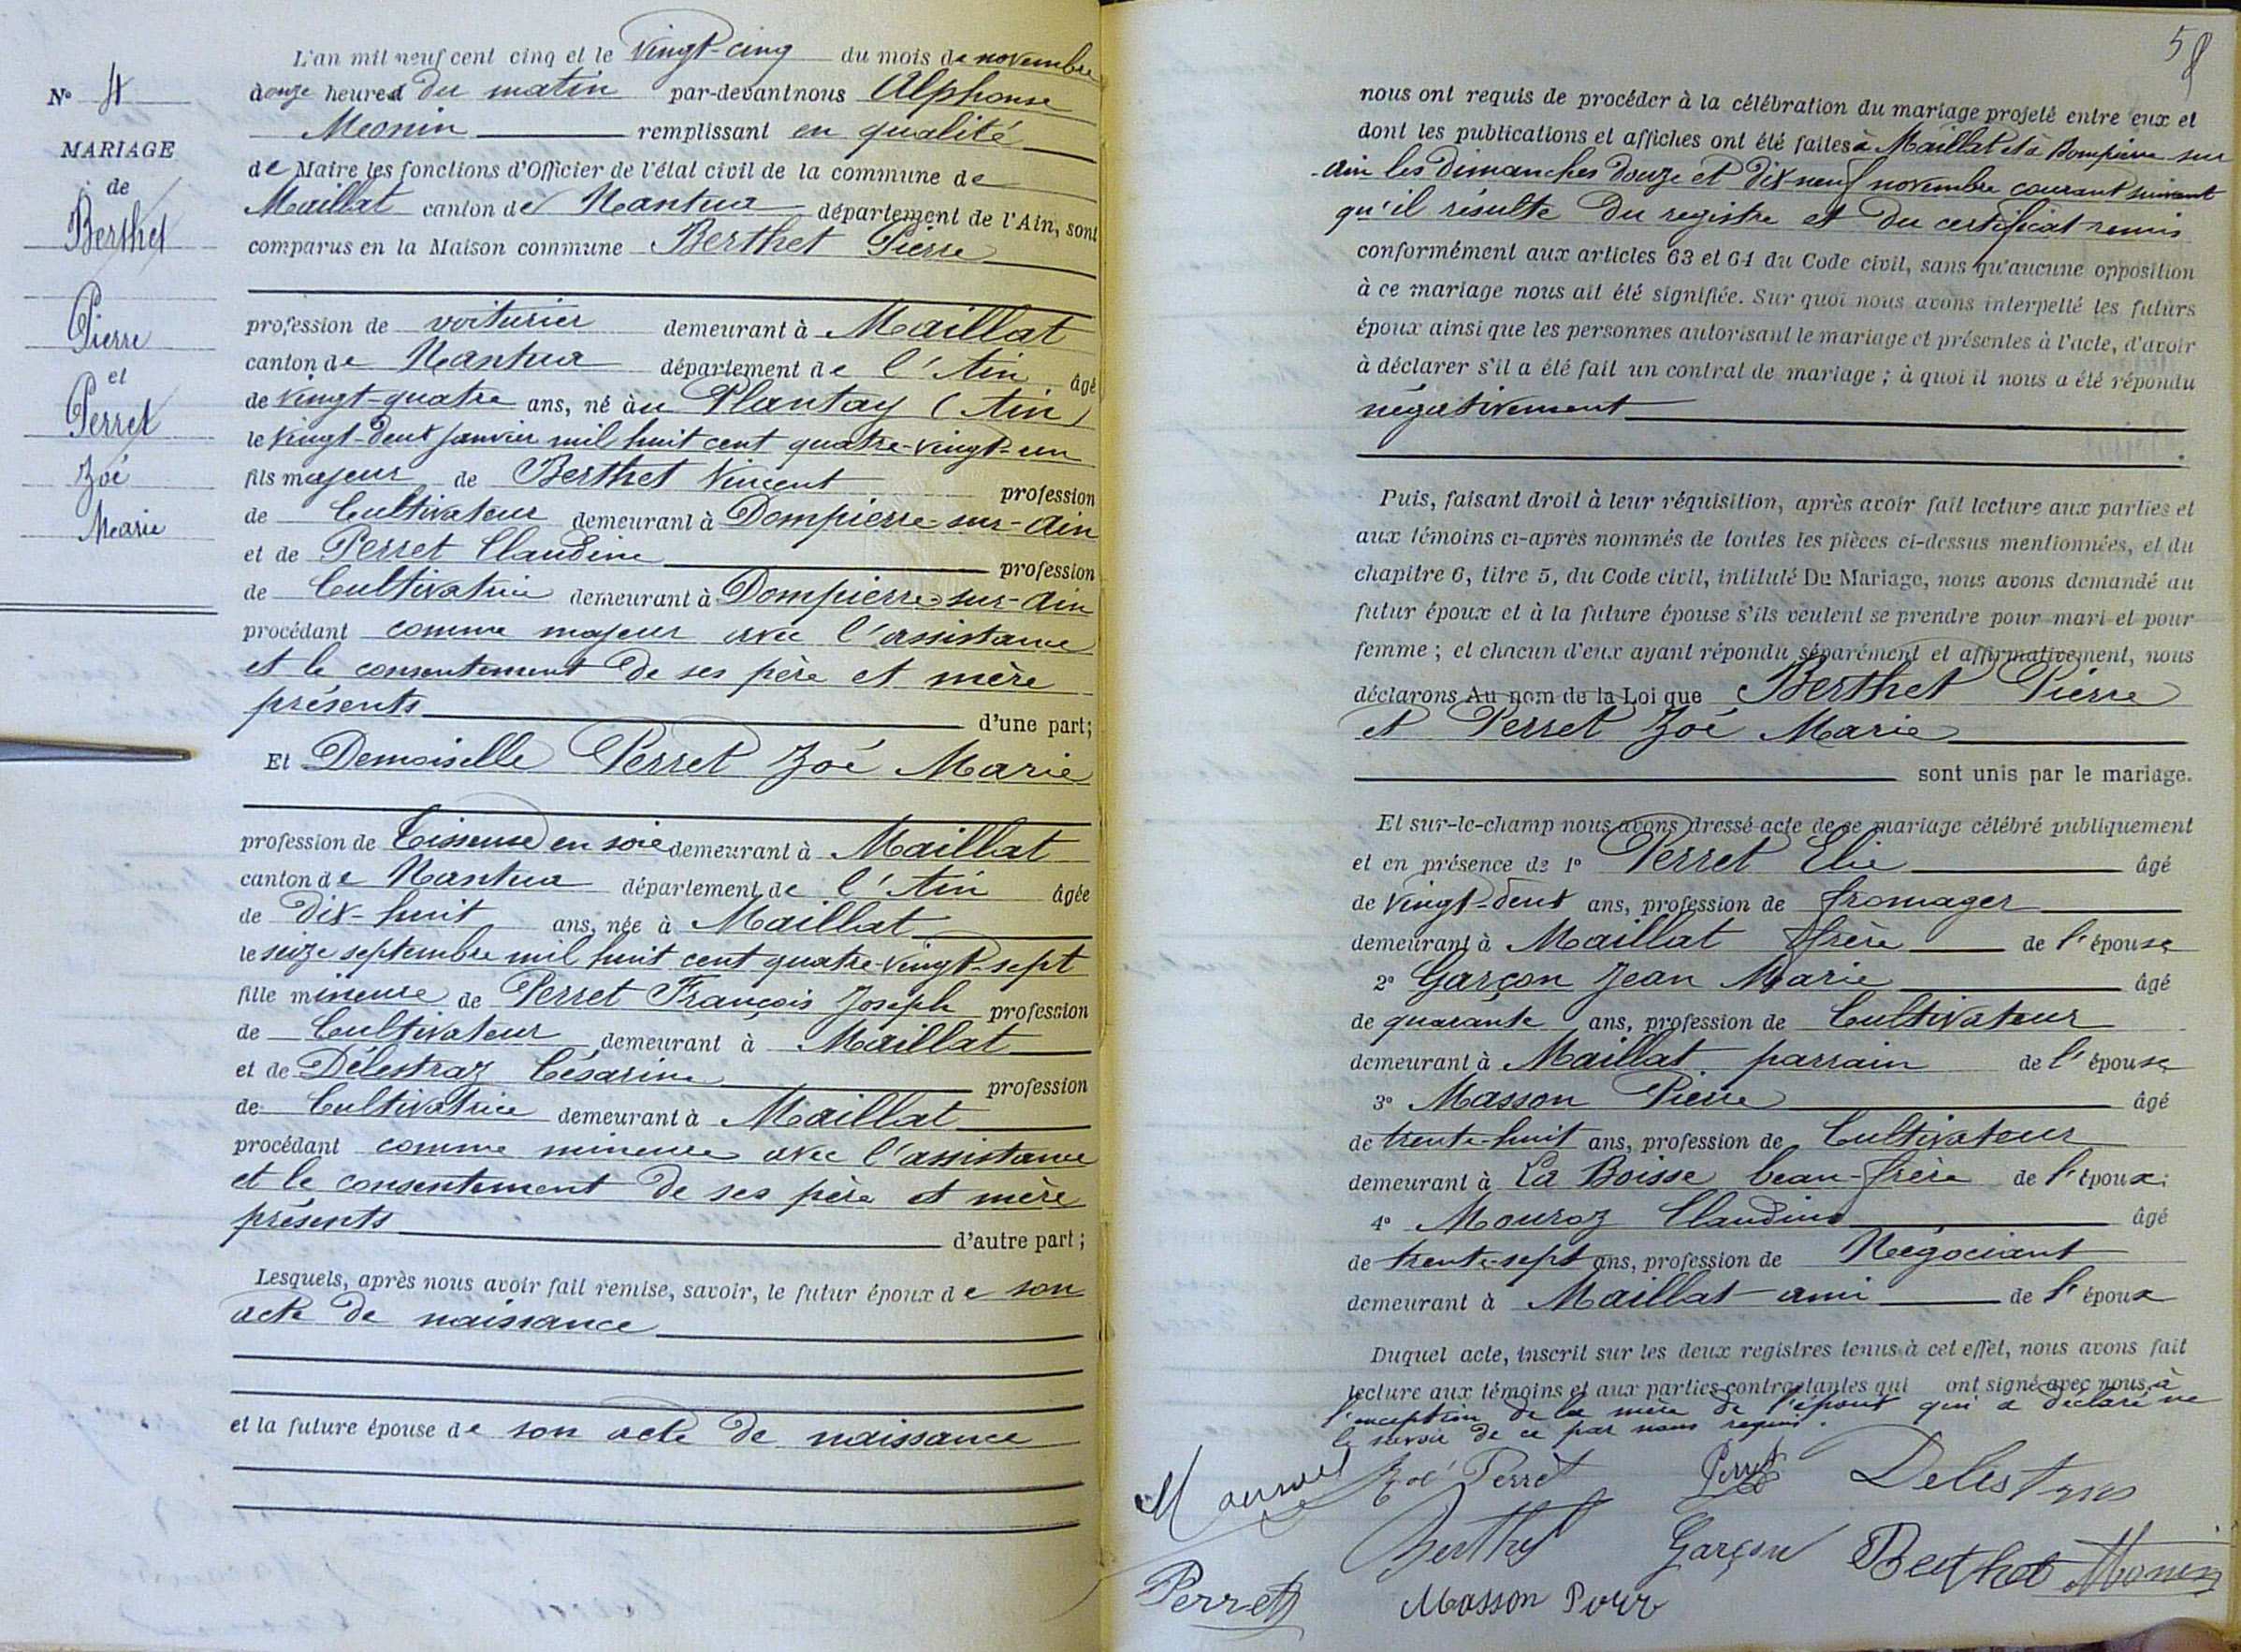 N° 4
MARIAGE
de
Berthet
Pierre
et
Perret
Zoé
Marie
L'an mil neuf cent cinq et le vingt-cinq du mois de novembre
à onze heures du matin par-devant nous Alphonse
Monin remplissant en qualité
de Maire les fonctions d'Officier de l'état civil de la commune de
Maillat canton de Nantua département de l'Ain, sont
comparus en la Maison commune Berthet Pierre
profession de voiturier demeurant à Maillat
canton de Nantua département de l'Ain âgé
de vingt-quatre ans, né au Plantay (Ain)
le vingt-deux janvier mil huit cent quatre-vingt-un
fils majeur de Berthet Vincent profession
de Cultivateur demeurant à Dompierre-sur-Ain
et de Perret Claudine profession
de Cultivatrice demeurant à Dompierre-sur-Ain
procédant comme majeur avec l'assistance
et le consentement de ses père et mère
présents d'une part;
Et Demoiselle Perret Zoé Marie
profession de Tisseuse en soie demeurant à Maillat
canton de Nantua département de l'Ain âgée
de Dix-huit ans, née à Maillat
le seize septembre mil huit cent quatre-vingt-sept
fille mineure de Perret François Joseph profession
de Cultivateur demeurant à Maillat
et de Délestraz Césarine profession
de Cultivatrice demeurant à Maillat
procédant comme mineure avec l'assistance
et le consentement de ses père et mère
présents d'autre part;
Lesquels, après nous avoir fait remise, savoir, le futur époux de son
acte de naissance
et la future épouse de son acte de naissance
58
nous ont requis de procéder à la célébration du mariage projeté entre eux et
dont les publications et affiches ont été faites à Maillat et à Dompierre sur
-Ain les Dimanches douze et dix-neuf novembre courant suivant
qu'il résulte du registre et du certificat remis
conformément aux articles 63 et 64 du Code civil, sans qu'aucune opposition
à ce mariage nous ait été signifiée. Sur quoi nous avons interpellé les futurs
époux ainsi que les personnes autorisant le mariage et présentes à l'acte, d'avoir
à déclarer s'il a été fait un contrat de mariage; à quoi il nous a été répondu
négativement
Puis, faisant droit à leur réquisition, après avoir fait lecture aux parties et
aux témoins ci-après nommés de toutes les pièces ci-dessus mentionnées, et du
chapitre 6, titre 5, du Code civil, intitulé Du Mariage, nous avons demandé au
futur époux et à la future épouse s'ils veulent se prendre pour mari et pour
femme; et chacun d'eux ayant répondu séparément et affirmativement, nous
déclarons Au nom de la Loi que Berthet Pierre
et Perret Zoé Marie
sont unis par le mariage.
Et sur-le-champ nous avons dressé acte de ce mariage célébré publiquement
et en présence de 1° Perret Elie âgé
de vingt-deux ans, profession de fromager
demeurant à Maillat frère de l'épouse
2° Garçon Jean Marie âgé
de quarante ans, profession de Cultivateur
demeurant à Maillat parrain de l'épouse
3° Masson Pierre âgé
de trente-huit ans, profession de Cultivateur
demeurant à La Boisse beau-frère de l'époux;
4° Mouroz Claudius âgé
de trente-sept ans, profession de Négociant
demeurant à Maillat ami de l'époux
Duquel acte, inscrit sur les deux registres tenus à cet effet, nous avons fait
lecture aux témoins et aux parties contractantes qui ont signé avec nous à
l'exception de la mère de l'époux qui a déclaré ne
le savoir de ce par nous requis.
Zoé Perret Perret Delestras
Berthet Garçon Berthet Monin
Perret Masson Pierre